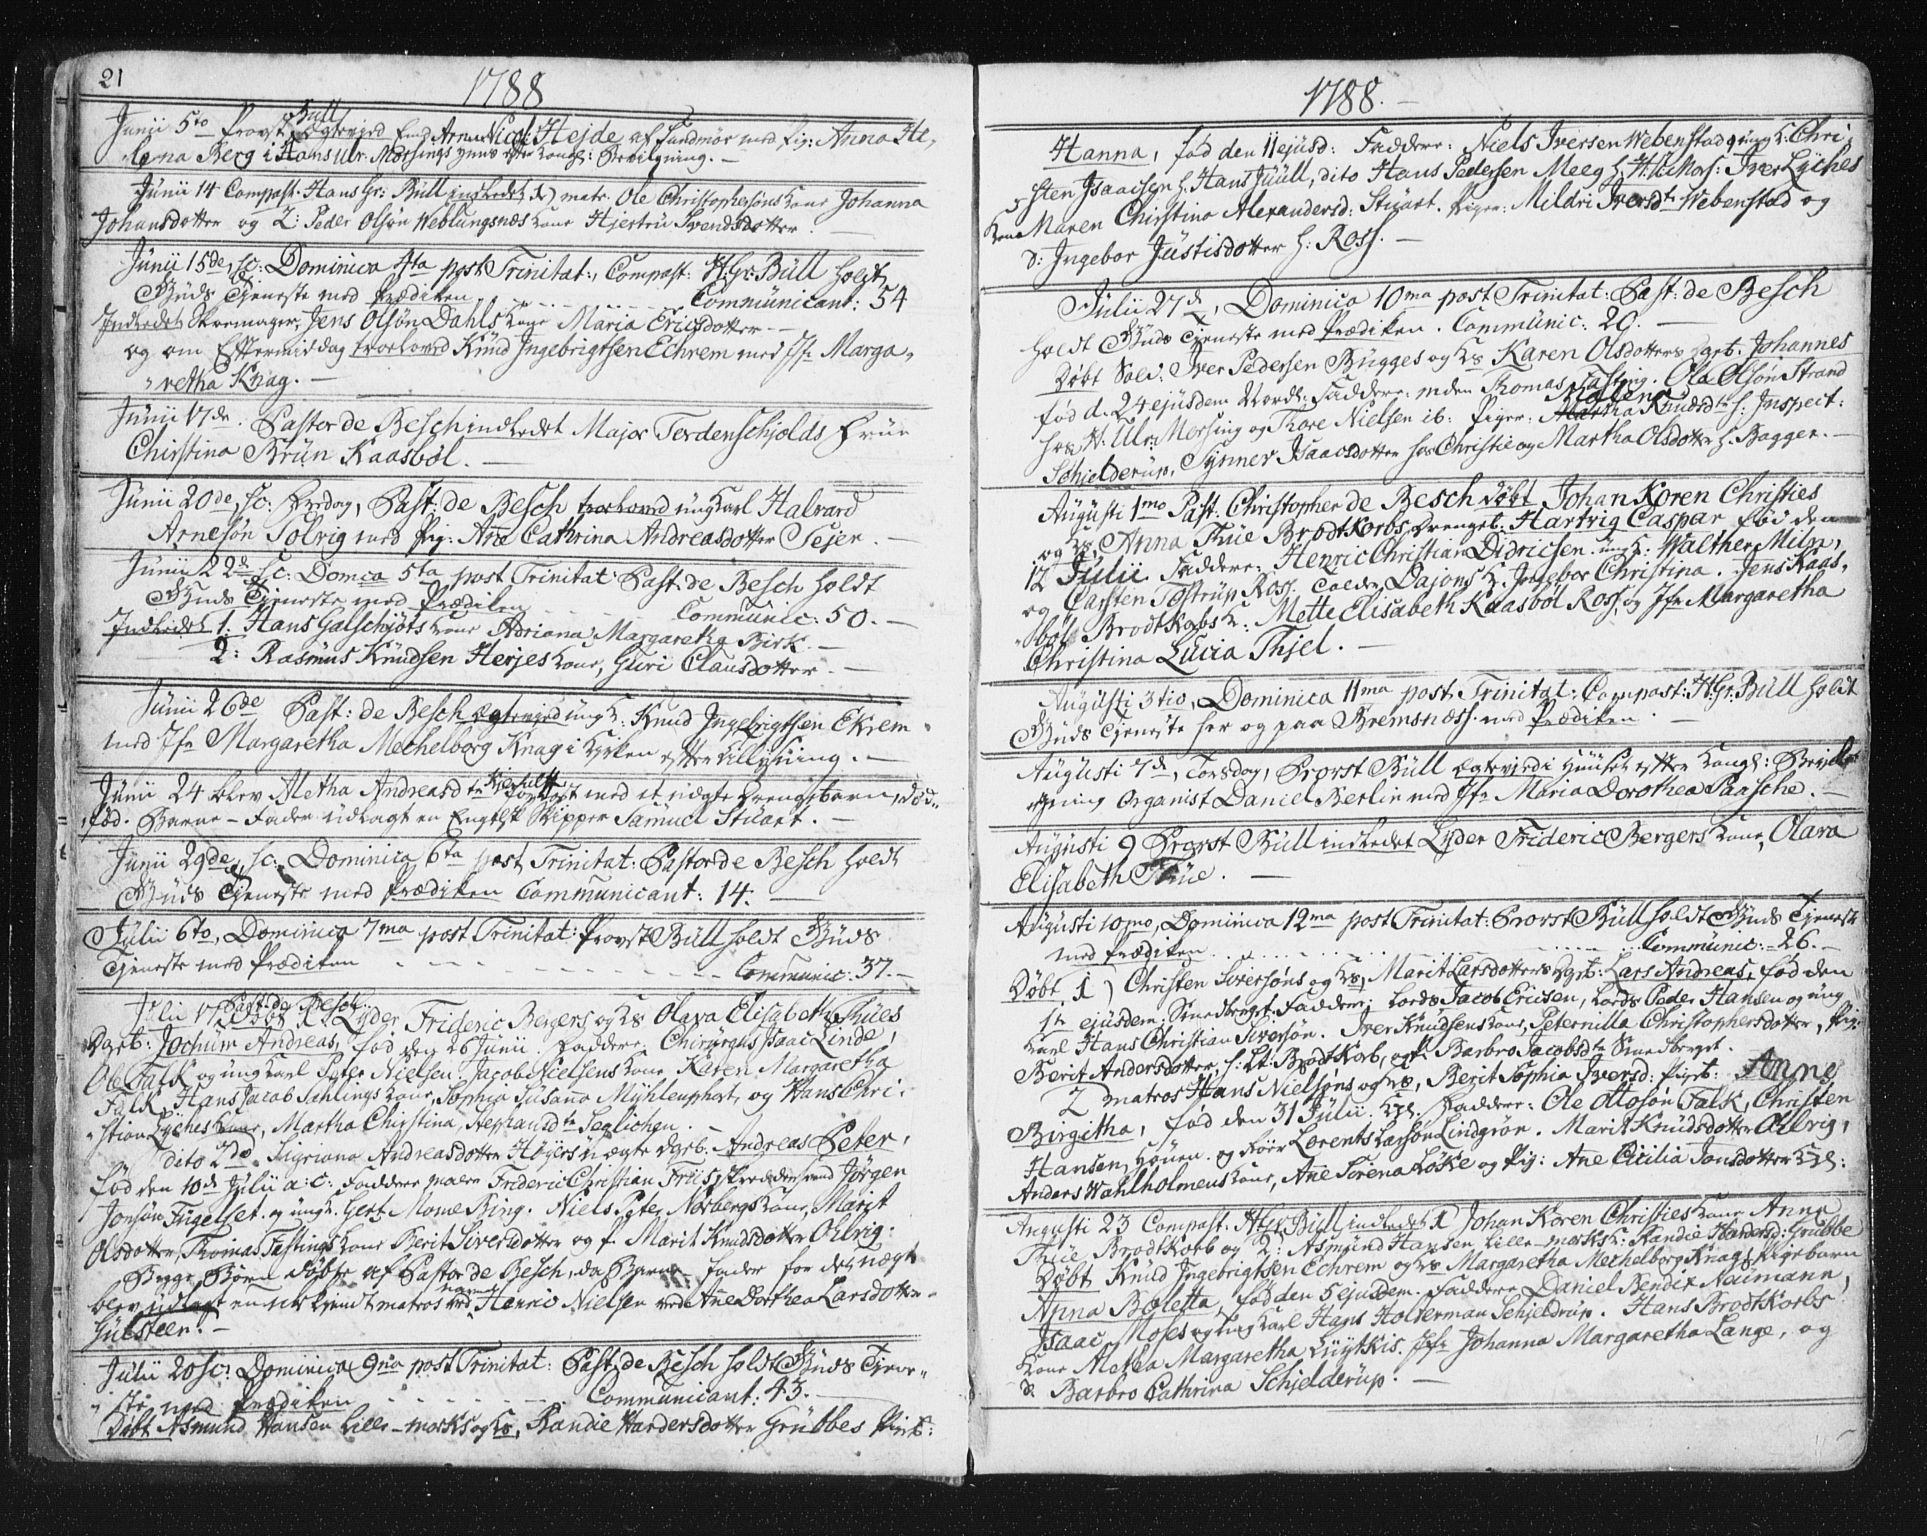 21
1788
Junii 5to Provst Büll Egtevied Emb. Arne Nicol: Hejde af Sundmör med Pig: Anna He,
lena Berg i Hans Ulr. Mörsings Huus efter Kongl: Bevilgning. —
Junii 14 Compast. Hans Gr: Büll indledet 1) matr. Ole Christophersöns Kone Johanna
Johansdotter og 2: Peder Olsön Weblungsnæs Kone Hjertrü Svendsdotter. —
Junii 15de, sc: Dominica 4ta post Trinitat:, Compast: H: Gr: Büll holdt
Güds Tjeneste med Prædiken Communicant: 54
Indledet Skomager, Jens Olsön Dahls Kone Maria Ericsdotter. —
og om Eftermiddag troeloved Knüd Ingebrigtsen Echrem med Jfr Marga,
retha Knag. —
Junii 17de. Pastor de Besch indledet Major Tordenschjolds Frue
Christina Brün Kaasböl. —
Junii 20de, sc: Fredag, Past: de Besch troeloved ung Karl Halvard
Arnesön Solvig med Pig: Ane Cathrina Andreasdotter Sejer. —
Junii 22de sc: Domca 5ta post Trinitat: Past: de Besch holdt
Güds Tjeneste med Prædiken Communic: 50. —
Indledet 1. Hans Galschjöts Kone Adriana Margaretha Birk. —
2: Rasmus Knüdsen Herjes Kone, Guri Clausdotter. —
Junii 26de Past: de Besch Egteviedj ung K: Knud Ingebrigtsen Ekrem
med Jfr Margaretha Mechelborg Knag i Kirken efter tillysning. —
Junii 24 blev Aletha Andreasdtr forlöst med et uægte Drengebarn, död-
född. Barne-Fader udlagt en Engelsk Skipper Samuel Stuart. —
Junii 29de, sc: Dominica 6ta post Trinitat: Pastor de Besch holdt
Güds Tjeneste med Prædiken Communicant: 14. —
Julii 6to, Dominica 7ma post Trinitat: Provst Büll holdt Güds
Tjeneste med Prædiken Communic: 37. —
Julii 17 Past: de Besch Döbt 1. Lyder Frideric Bergers og Ks Olava Elisabeth Thües
Dgrb: Jochum Andreas, föd den 26 Junii. Faddere: Chirurgus Isaac Linde,
Ole Falk og ung Karl Peter Nielsen. Jacob Nielsens Kone Karen Margaretha
Falk, Hans Jacob Sehlings Kone, Sophia Susana Mühlenphort, og Hans Chri:
stian Lyches Kone, Martha Christina, Nephansdtr Seglichen. —
dito 2do. Sigriana Andreasdotter Höyers uægte Dgrb: Andreas Peter,
föd den 10de Julii a: c: Faddere maler Frideric Christian Friis, Skredder Svend Jörgen
Jonsön Fugelset. og ung K. Gert Mome Bing. Niels Peter Norbergs Kone, Marit
Olsdotter, Thomas Fastings Kone Berit Siversdotter og p. Marit Knudsdotter Ohlvig:
Begge Börn döbte af Pastor de Besch, da Barne-Fader for det uægte
blev udlagt en ubekjendt matros ved navn Henric Nielsen ved Ane Dorthea Larsdotter
Gulsteen. —
Julii 20 sc: Dominica 9na post Trinitat: Past: de Besch holdt Güds Tjene-
ste med Prædiken Communicant: 43. —
Döbt Asmund Hansen Lille-morks og Ks, Randie Hardersdotter Grübbes Pigb:
1788. —
Hanna, föd den 11 ejusd: Faddere: Niels Iversen Webenstad og ung K: Chri,
sten Isaacsen h. Hans Jüüll, dito Hans Pedersen Meeg h. H: Iver Lyches
Kone Maren Christina Alexandersd: Stüart. Piger: Mildri Iversdtr Webenstad og
d: Ingebor Jüstisdotter h: Ross. —
Julii 27de, Dominica 10ma post Trinitat: Past: de Besch
holdt Güds Tjeneste med Prædiken. Communic: 20. —
Döbt Sold: Iver Pedersen Bügges og Ks Karen Olsdotters Dgrb. Johannes
föd d. 24 ejusdem Nordl: Faddere: Thomas Fasting. Ola Olsön Strand
hos H: Ulr: Mörsing og Thore Nielsen ib: Piger: Malena Knudsdtr h: Inspect:
Schjelderup, Synner Isaacsdotter hos Christie og Martha Olsdotter h. Bagger. —
Augusti 1mo Past. Christopher de Besch döbt Johan Koren Christies
og Ks, Anna Thüe Brodtkorbs Drengeb: Hartvig Caspar föd den
12 Julii. Faddere: Henric Christian Didricsen. ung K: Walther Miln,
og Carsten Tostrup Ross. Dajons K. Ingebor Christina. Jens Kaas,
böl Brodtkorbs K: Mette Elisabeth Kaasböl Ross, og Jfr Margaretha
Christina Lucia Thjel. —
Augusti 3tio, Dominica 11ma post Trinitat: Compast: H: Gr: Büll holdt
Güds Tjeneste her og paa Bremsnæss. med Prædiken. —
Augusti 7de, Torsdag, Provst Büll Egteviedj i Huuset efter Kongl: Bevill-
gning Organist Daniel Berlin med Jfr Maria Dorothea Paasche. —
Augusti 9 Provst Büll indledet Lyder Frideric Bergers Kone, Olava
Elisabeth Thüe. —
Augusti 10mo, Dominica 12ma post Trinitat: Provst Büll holdt Güds Tjeneste
med Prædiken Communic: 26. —
Döbt 1) Christen Siversöns og Ks, Marit Larsdotters Dgrb: Lars Andreas, föd den
1te ejusdem, Smedberget. Faddere: Lods Jacob Ericsen, Lods Peder Hansen og ung
Karl Hans Christian Siversön. Iver Knudsens Kone, Peternilla Christophersdotter, Pig:
Berit Andersdotter, h: Lt: Brodtkorb, og P: Barbro Jacobsdtr Smedberget. —
2 Matros Hans Nielsöns og Ks, Berit Sophia Iversd: Pigb: Anne
Birgitha, föd den 31 Julii. Faddere: Ole Ottosön Falk, Christen
Hansen, Hönen. og Roer Lorents Larsön Lindgron. Marit Knüdsdotter Ohlvig,
Anders Wahlholmens Kone, Ane Sorena Löke og Pig: Ane Cicilia Jonsdotter
Augusti 23 Compast: H: Gr: Büll indledet 1) Johan Koren Christies Kone Anna
Thüe Brodtkorb og 2: Asmünd Hansen Lille-morks K: Randie Hardersd: Grübbe
Döbt Knüd Ingebrigtsen Echrem og Ks Margaretha Mechelborg Knags Pigebarn
Anna Boletta, föd den 5 ejusdem. Faddere Daniel Bendix Naimann,
Isaac Moses og ung Karl Hans Holterman Schjeldrup. Hans Brodtkorbs
Kone Aletha Margaretha Lüytkis. Jfr Johanna Margaretha Lange, og
d: Barbro Cathrina Schjelderup. —